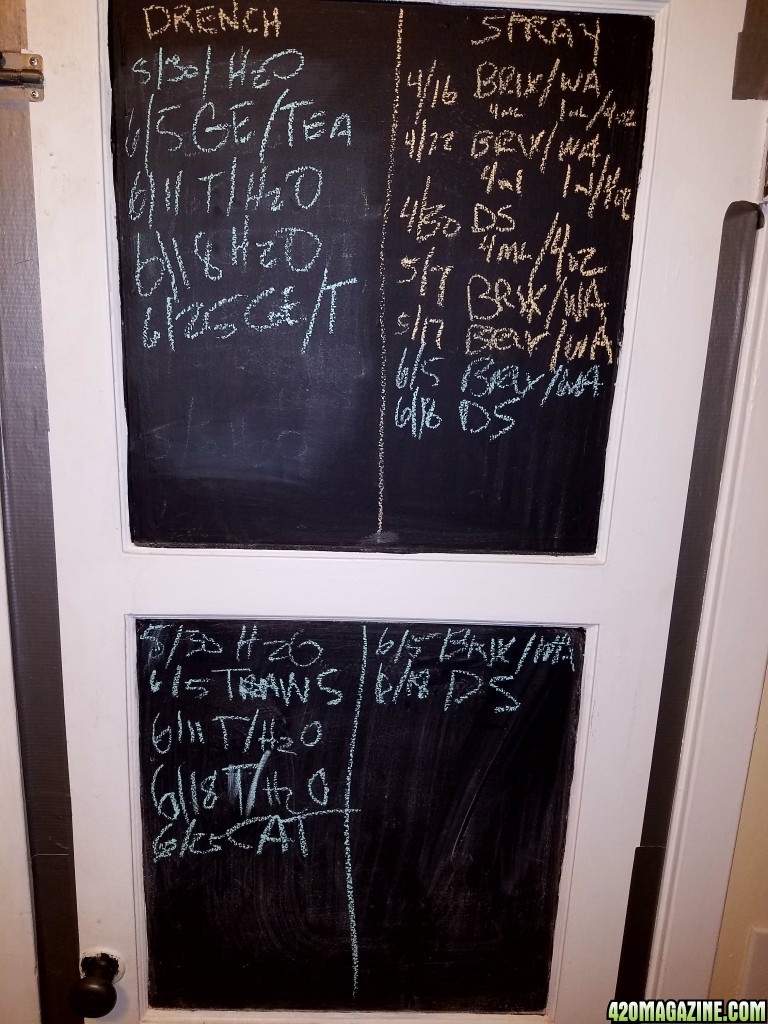 DRENCH
5/30/H2O
6/5 GE/TEA
6/11 T/H2O
6/18 H2O
6/25 GE/T
SPRAY
4/16 BRIX/WA
4ML 1ML/4OZ
4/22 BRIX/WA
4ml 1ml/4oz
4/30 DS
4ML/4OZ
5/7 BRIX/WA
5/17 BRIX/WA
6/5 BRIX/WA
6/18 DS
5/30 H2O
6/5 TRANS
6/11 T/H2O
6/18 T/H2O
6/25 CAT
6/5 BRIX/WA
6/18 DS
420MAGAZINE.COM